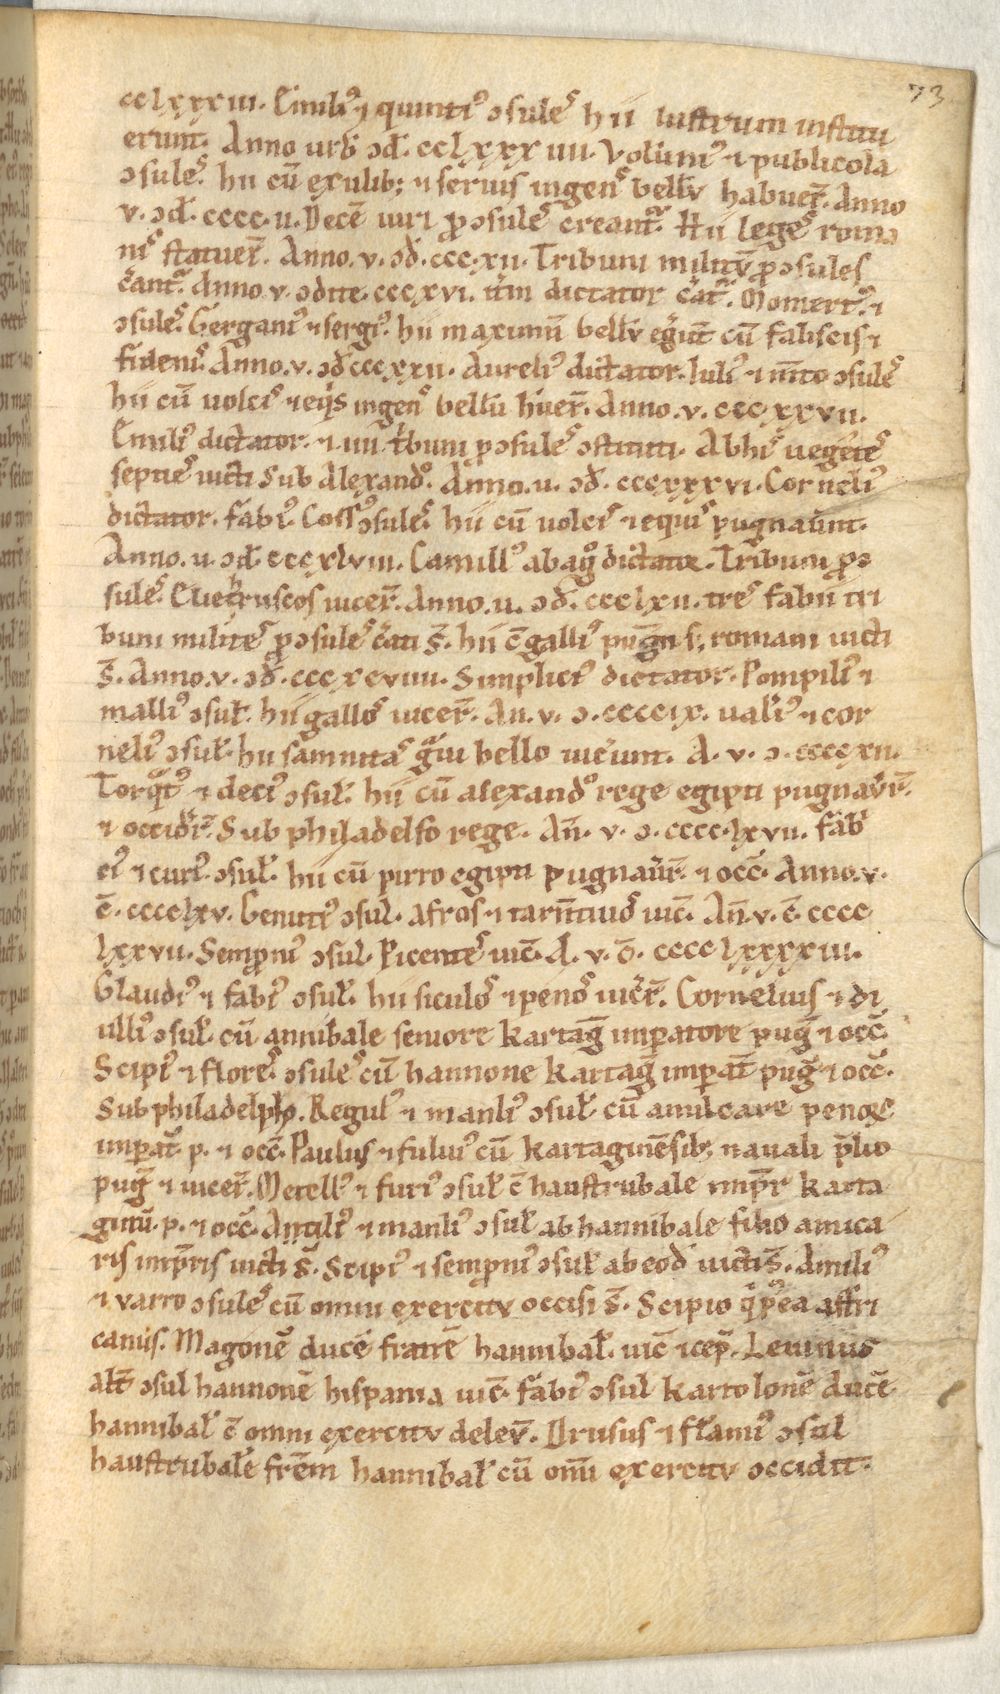 73
cclxxxiii. Emiliꝰ ⁊ quintiꝰ ꝯsules hii lustrum institu
erunt. Anno urb̄ ꝯd̄. cclxxxiiii. Volūniꝰ ⁊ publicola
ꝯsules. hii cū exulib; ⁊ seruis ingens bellū habuer̄. Anno
v. ꝯd̄. cccc. ii. Decē uiri ꝓꝯsules creant̄. Hii leges roma
nis statuer̄. Anno. v. ꝯd̄. ccc. xii. Tribuni militū ꝓꝯsules
c̄ant̄. Anno v. ꝯdite. cccxvi. it̄m dictator c̄at̄. Momertꝰ. ⁊
ꝯsules. Gerganiꝰ ⁊ sergiꝰ. hii maximū bellū eḡunt cū faliscis ⁊
fidenis. Anno. v. ꝯd̄ cccxxii. Aureliꝰ dictator. Iuliꝰ ⁊ ꝯsules
hii cū uolcis ⁊ eq̄s ingens bellū h̄uer̄. Anno. v. cccxxvii.
Emiliꝰ dictator. ⁊ iiii tⁱbuni ꝓꝯsules ꝯstituti. Abhis uegētes
septies uicti Sub Alexandº. Anno. u. ꝯd̄. cccxxxvi. Corneliꝰ
dictator. fabiꝰ. Cossꝰ ꝯsules. hii cū uolcis ⁊ equis pugnaūnt.
Anno. u. ꝯd̄. cccxlviii. Camillꝰ abagº dictator. Tribuni ꝓꝯ
sules. hetruscos uicer̄. Anno. u. ꝯd̄. ccclxii. tres fabii tri
buni milites ꝓꝯsules c̄ati s̄. hii c̄ gallis pugn̄ s; romani uicti
s̄. Anno. v. ꝯd̄. cccxcviiii. Simpliciꝰ dictator. Pompiliꝰ ⁊
malliꝰ ꝯsul̄. hii gallos uicer̄. An. v. ꝯ. ccccix. ual̄iꝰ ⁊ cor
neliꝰ ꝯsul̄. hii samnitas gᵃui bello uic̄unt. A. v. ꝯ. ccccxii.
Torqᵃtꝰ ⁊ deciꝰ ꝯsul̄. hii cū alexandº rege egipti pugnaūr̄.
⁊ occidēr̄. Sub philadelfo rege. An̄. v. ꝯ. cccc. lxvii. fabⁱ
ciꝰ ⁊ curiꝰ. ꝯsul̄. hii cū pirro egipti pugnaūr̄. ⁊ occ̄. Anno. v.
c̄. cccclxv. Genutiꝰ ꝯsul. Afros ⁊ tarn̄tinos uic̄. An̄. v. c̄. cccc
lxxvii. Sempͦniꝰ ꝯsul. Picentes uic̄. A. v. c̄. cccclxxxxiii.
Glaudiꝰ ⁊ fabiꝰ ꝯsul̄. hii siculos ⁊ penos uic̄r̄. Cornelius ⁊ di
ulliꝰ ꝯsul̄. cū annibale seniore kartaḡ imꝑatore puḡ ⁊ occ̄.
Scipiꝰ ⁊ flores. ꝯsules cū hannone kartaḡ imꝑat̄ puḡ ⁊ occ̄.
Sub philadelpho. Regulꝰ ⁊ manliꝰ ꝯsul̄ cū amilcare penoꝝ
imꝑat̄. p. ⁊ occ̄. Paulus ⁊ fuluiꝰ cū kartaginēsib; nauali p̄lio
puḡ ⁊ uicer̄. Metellꝰ ⁊ furiꝰ ꝯsul̄ c̄ haustrubale imꝑr̄ karta
ginū. p. ⁊ occ̄. Antiliꝰ ⁊ manliꝰ ꝯsul̄ ab hannibale filio amica
ris imꝑr̄is uicti s̄. Scipiꝰ ⁊ sempͦniꝰ ꝯsul̄ ab eod̄ uicti s̄. Amiliꝰ
⁊ varro ꝯsules cū omni exercitv occisi s̄. Scipio q̄ pꝰea affri
canus. Magonē ducē fratrē hannibal̄. uic̄ ⁊ cep̄. Leuinus
alt̄ ꝯsul hannonē hispania uic̄. fabiꝰ ꝯsul kartolonē ducē
hannibal̄ c̄ omni exercitv delev̄. Drusus ⁊ flamiꝰ ꝯsul
haustrubale fr̄em hannibal̄ cū om̄i exercitv occidit.